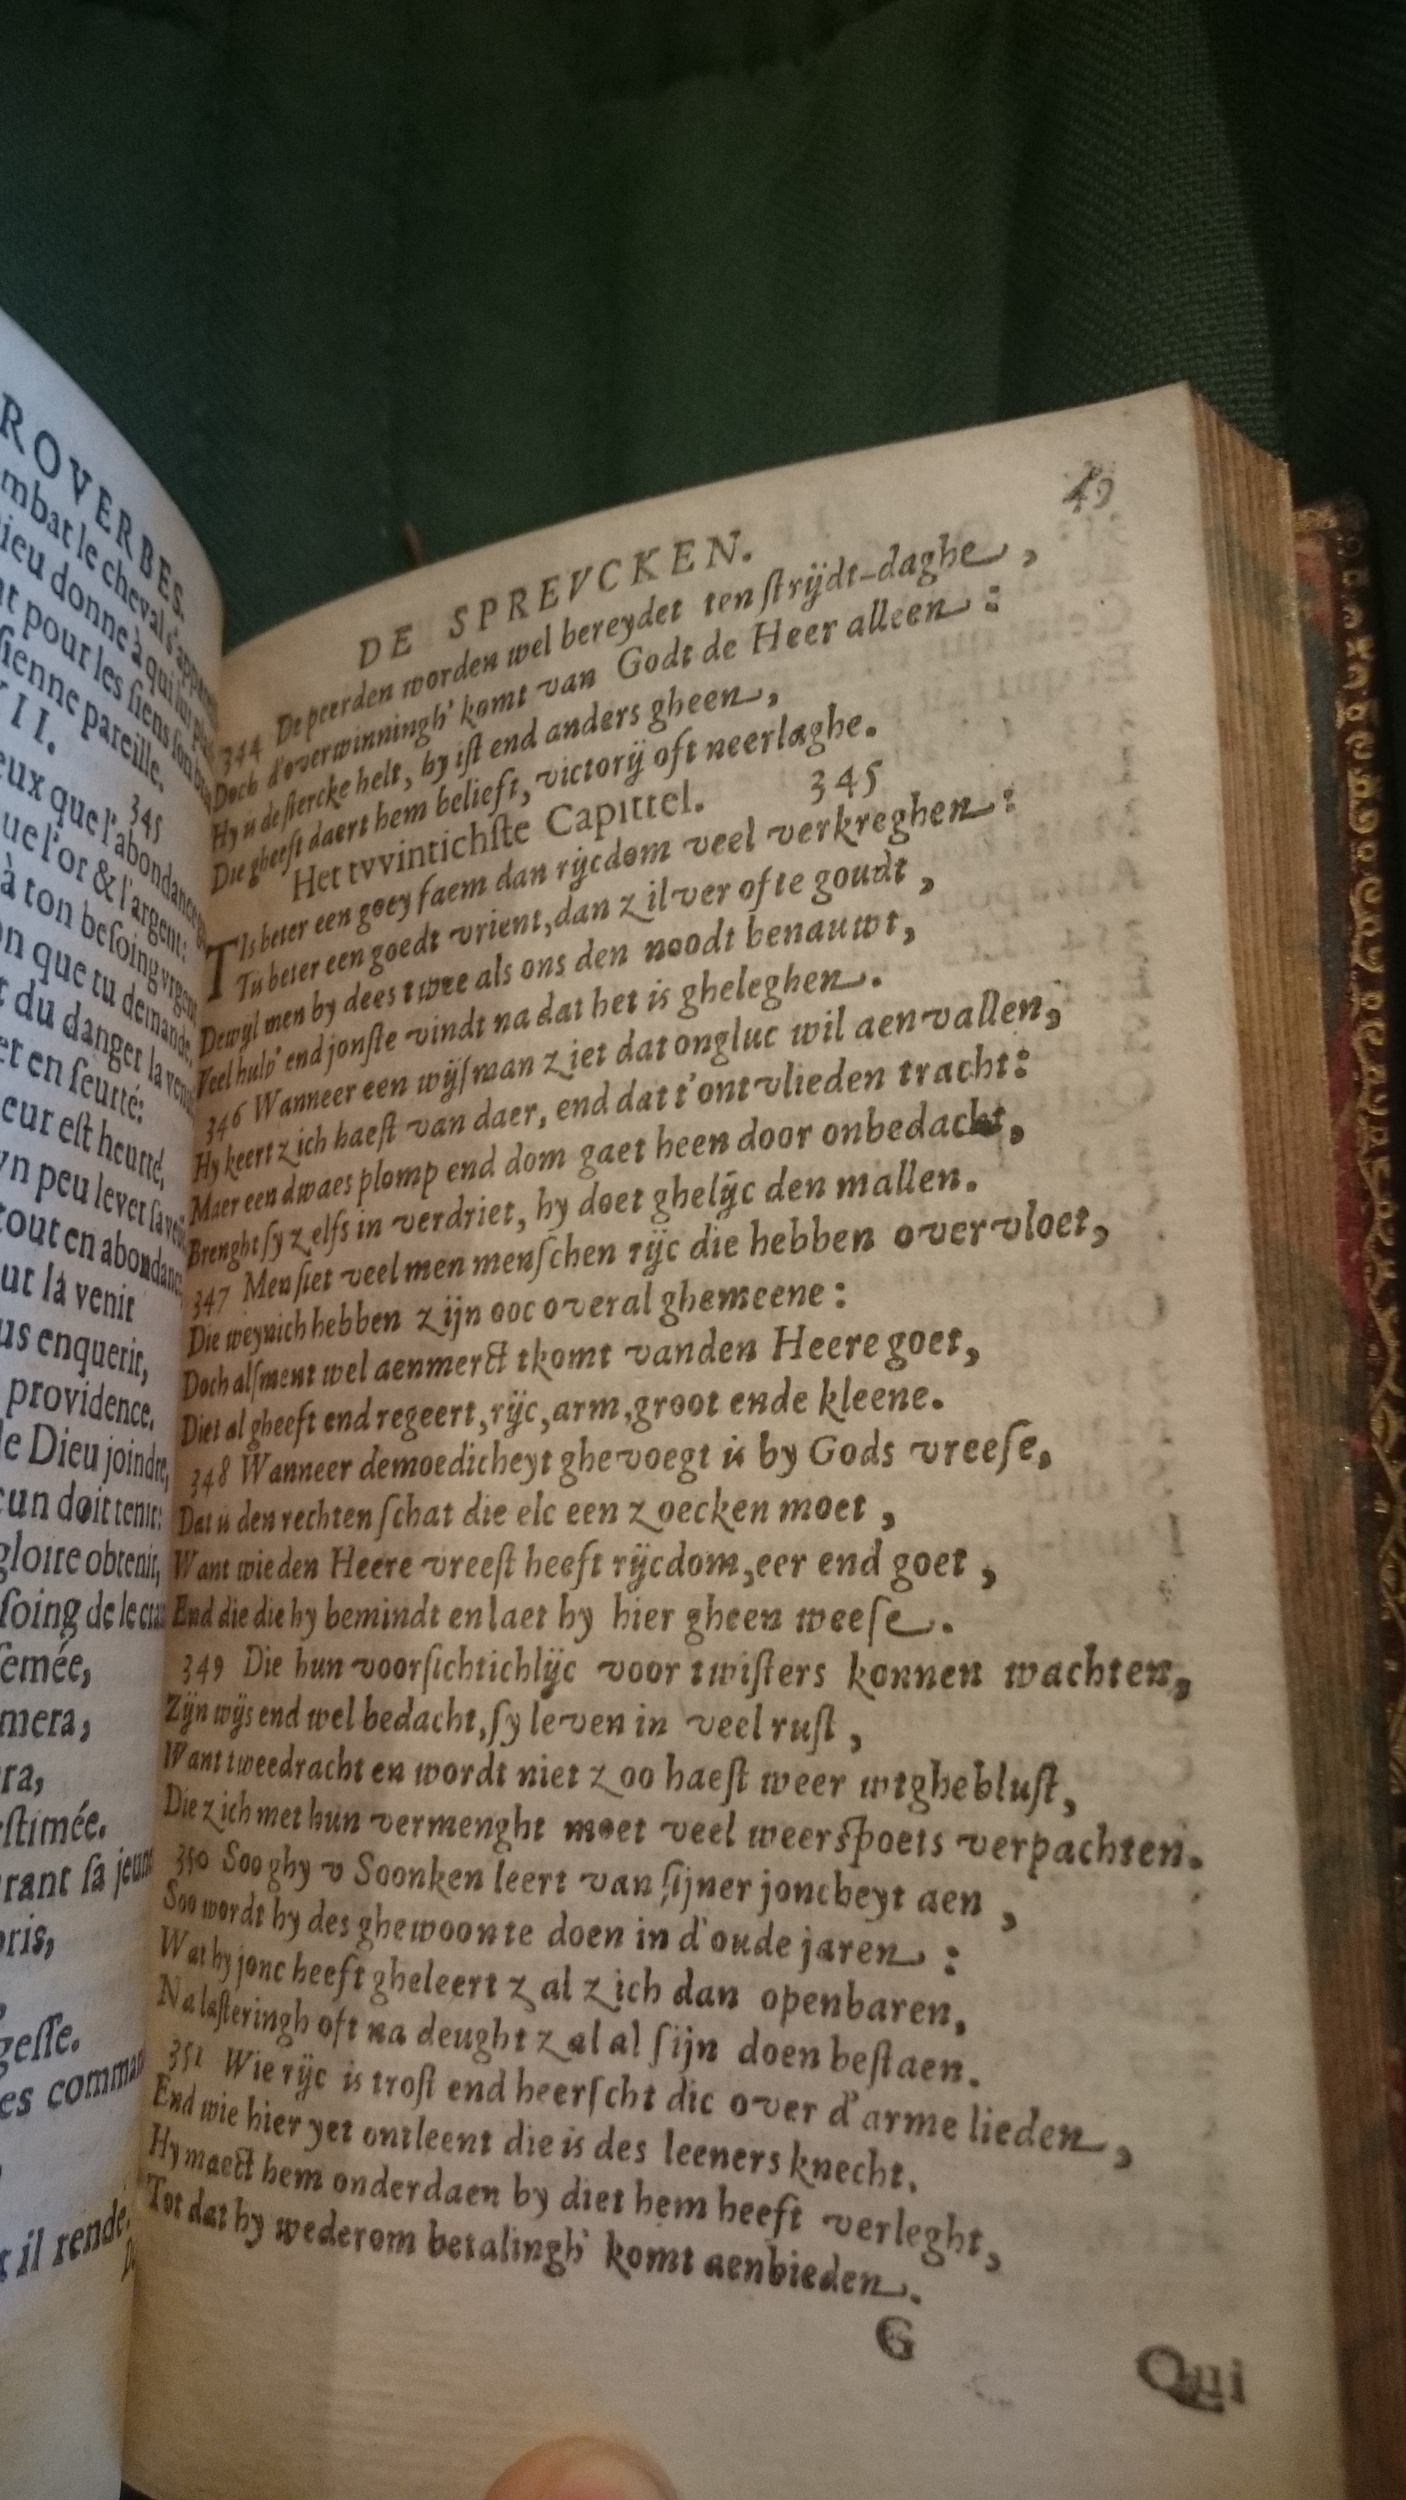 ROVERBES.
mbat le cheval s'appre
ieu donne à qui luy pla
t pour les siens son
sienne pareille.
II.
345
eux que l'abondance
ue l'or & l'argent:
à ton besoing vrgent
on que tu demande.
t du danger la venue
et en seurté:
eur est heurté,
vn peu lever sa
tout en abondance
ut là venir
us enquerir,
providence.
de Dieu joindre,
cun doit tenir:
gloire obtenir,
soing de le
semée,
mera,
ra,
estimée.
rant sa jeun
pris,
gesse.
es comman
il rende.
DE SPREVCKEN.
49
344 De peerden worden wel bereydet ten strijdt-daghe,
Doch d'overwinningh' komt van Godt de Heer alleen:
Hy is de stercke helt, hy ist end anders gheen,
Die gheeft daert hem belieft, victorij oft neerlaghe.
Het tvvintichste Capittel. 345
TIs beter een goey faem dan rijcdom veel verkreghen:
Tis beter een goedt vrient, dan zilver ofte goudt,
Dewijl men by dees twee als ons den noodt benauwt,
Veel hulp' end jonste vindt na dat het is gheleghen.
346 Wanneer een wijsman ziet dat ongluc wil aenvallen,
Hy keert zich haest van daer, end dat t'ontvlieden tracht:
Maer een dwaes plomp end dom gaet heen door onbedacht,
Brenght sy zelfs in verdriet, hy doet ghelijc den mallen.
347 Men siet veel men menschen rijc die hebben overvloet,
Die weynich hebben zijn ooc overal ghemeene:
Doch alsment wel aenmerct tkomt vanden Heere goet,
Diet al gheeft end regeert, rijc, arm, groot ende kleene.
348 Wanneer demoedicheyt ghevoegt is by Gods vreese,
Dat is den rechten schat die elc een zoecken moet,
Want wie den Heere vreest heeft rijcdom, eer end goet,
End die die hy bemindt en laet hy hier gheen weese.
349 Die hun voorsichtichlijc voor twisters konnen wachten,
Zijn wijs end wel bedacht, sy leven in veel rust,
Want tweedracht en wordt niet zoo haest weer wtgheblust,
Die zich met hun vermenght moet veel weerspoets verpachten.
350 Soo ghy v Soonken leert van sijner joncheyt aen,
Soo wordt hy des ghewoonte doen in d'oude jaren:
Wat hy jonc heeft gheleert zal zich dan openbaren,
Na lasteringh oft na deught zal al sijn doen bestaen.
351 Wie rijc is trost end heerscht dic over d'arme lieden,
End wie hier yet ontleent die is des leeners knecht.
Hy maect hem onderdaen by diet hem heeft verleght,
Tot dat hy wederom betalingh' komt aenbieden.
G
Qui